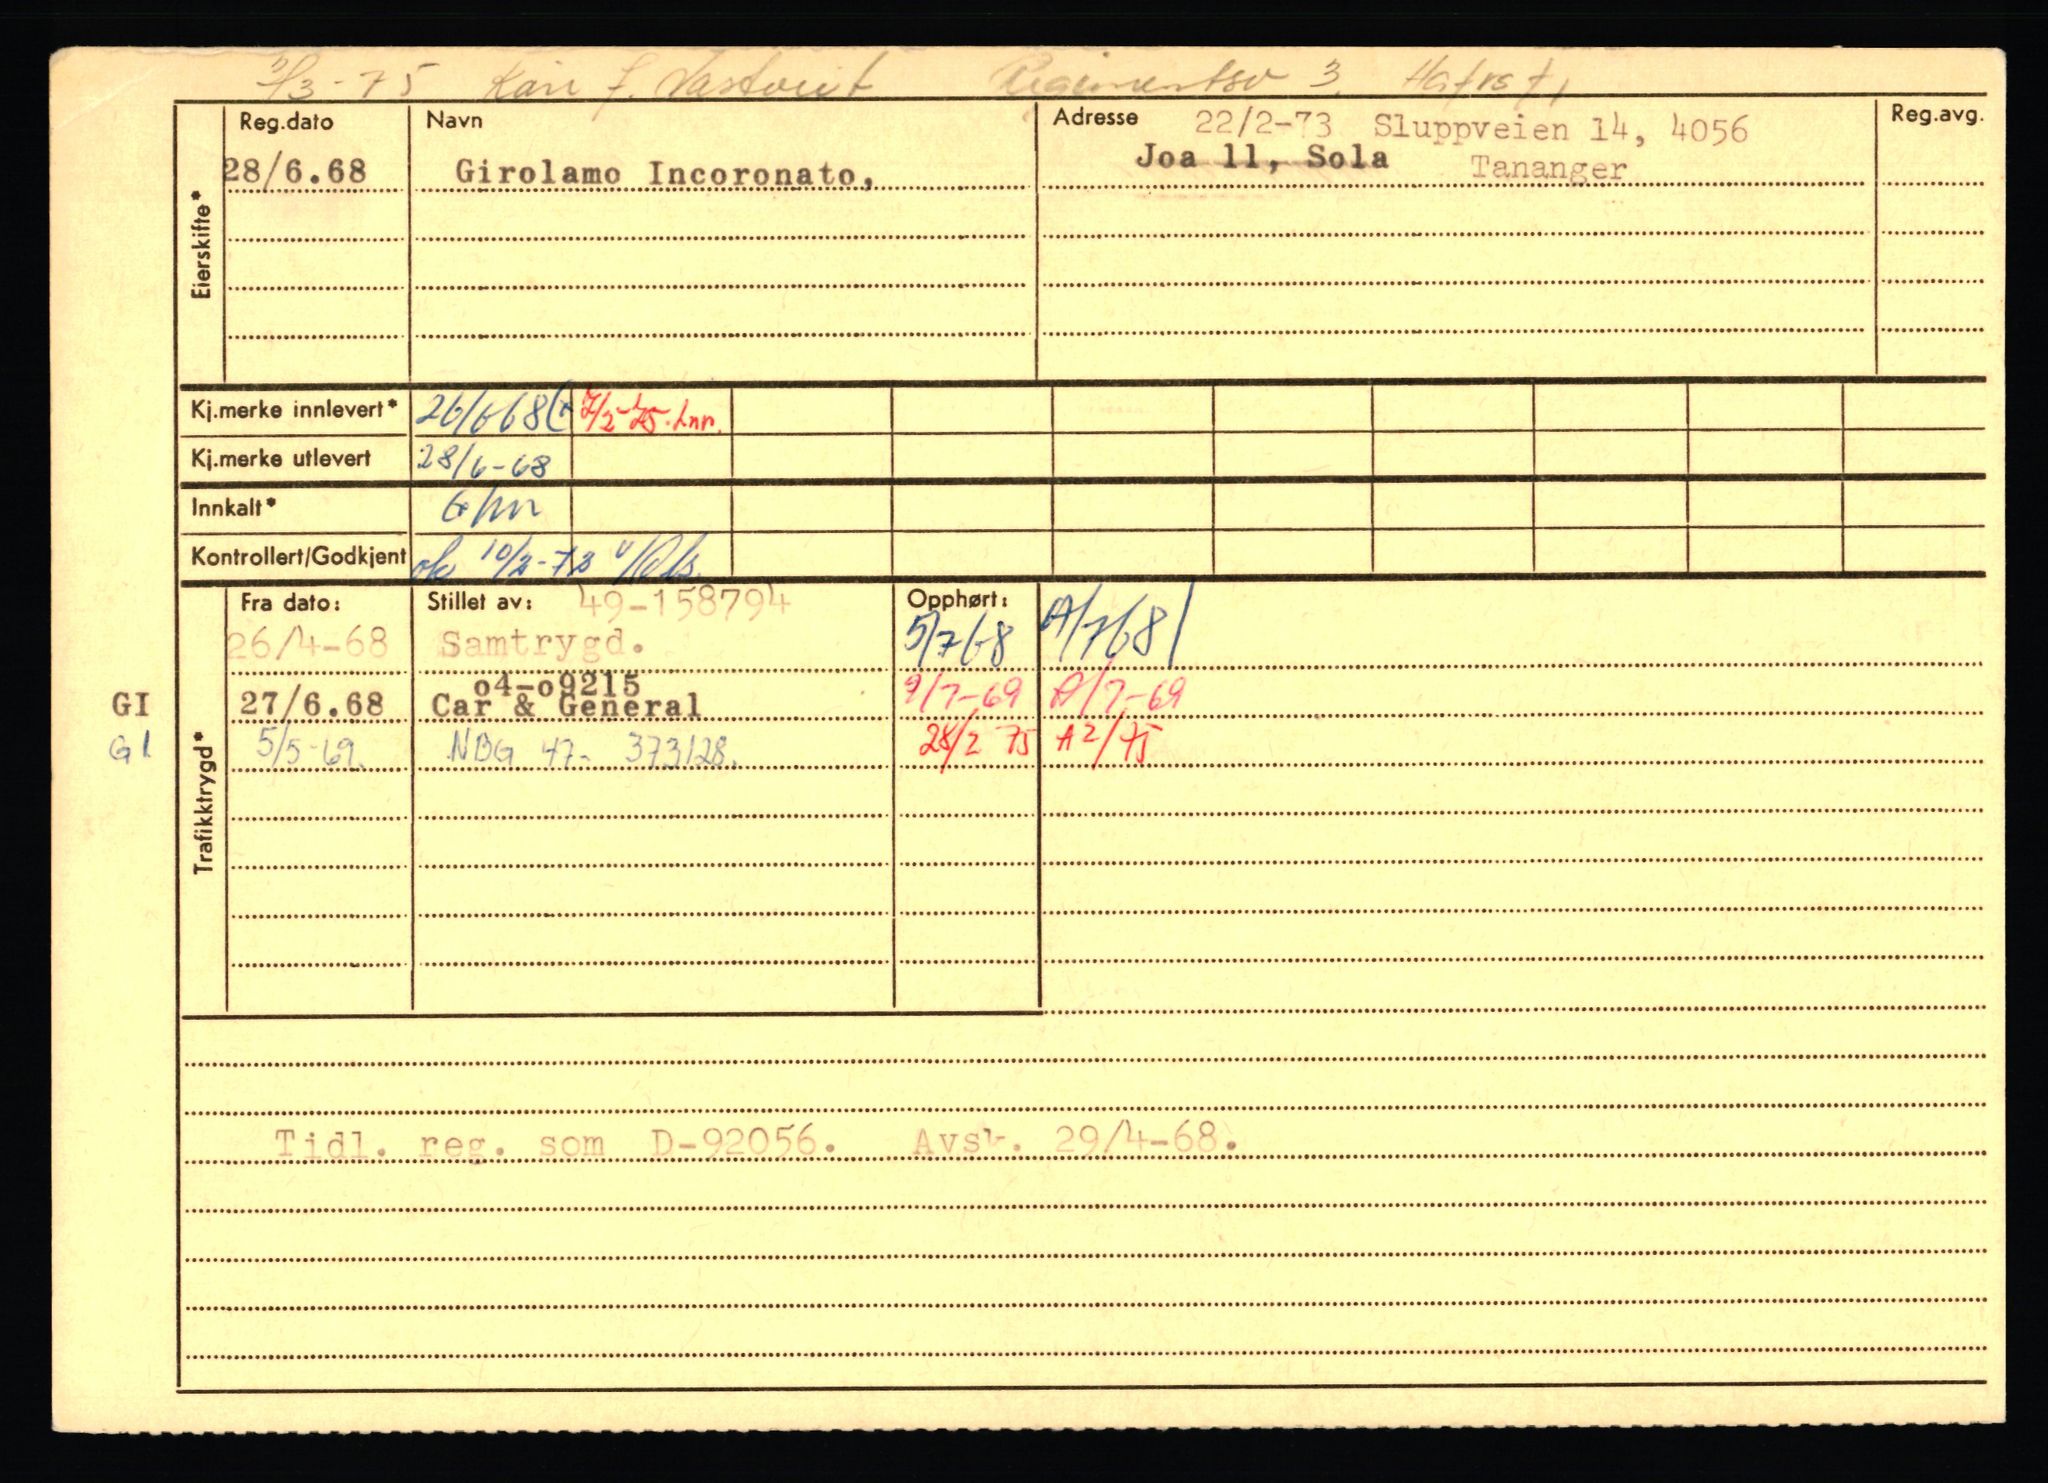 3/3-75 Kåre J. Regimentsv 3.
Reg.dato Navn Adresse 22/2-73 Sluppveien 14, 4056 Reg.avg.
28/6.68 Girolamo Incoronato, Joa 11, Sola Tananger
Eierskifte*
Kj.merke innlevert* 26/6 68 7/2-75. Inn.
Kj.merke utlevert 28/6-68
Innkalt*
Kontrollert/Godkjent ok 10/2-73
Fra dato: Stillet av: 49-158794 Opphørt:
26/4-68 Samtrygd. 5/7 68 A/7 68
o4-o9215
GI 27/6.68 Car & General 9/7-69 A/7-69
GI 5/5-69. NBG 47- 373128. 28/2 75 A 2/75
Trafikktrygd*
Tidl. reg. som D-92056. Avsk. 29/4-68.